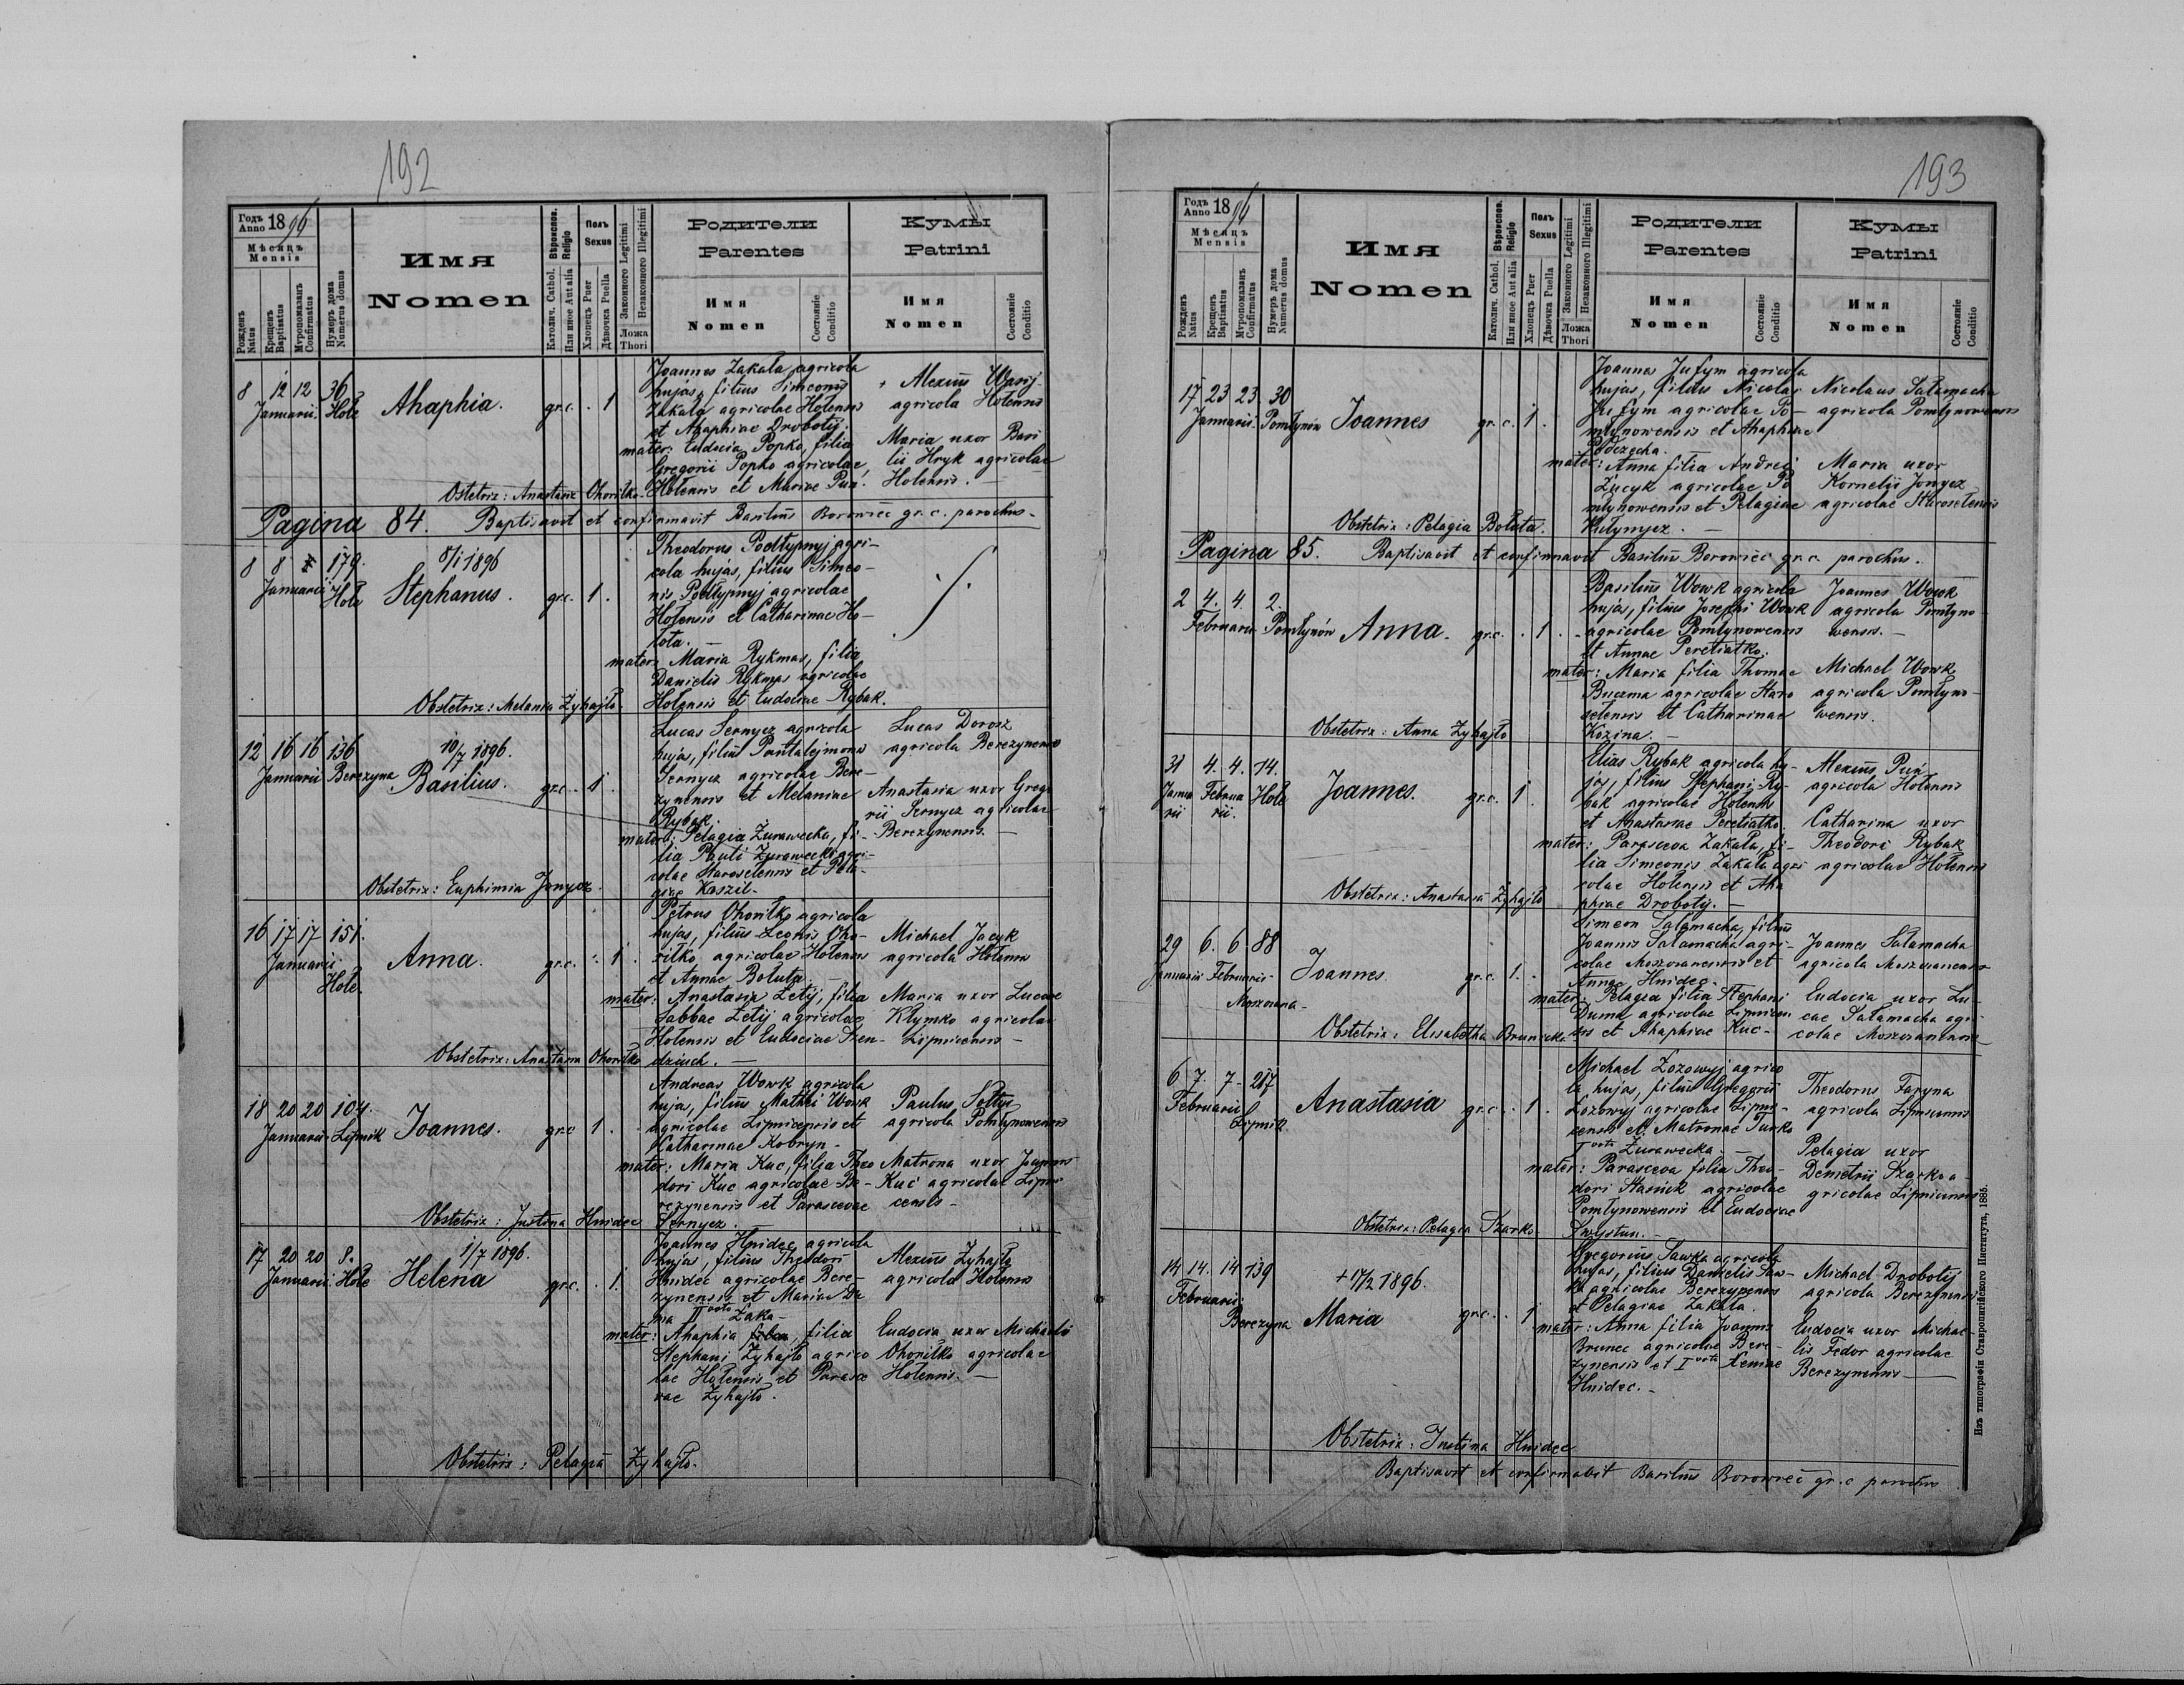 192
Годъ
Anno 1896
Мѣсяцъ
Mensis
Рожденъ
Natus
Крещенъ
Baptisatus
Мѵропомазанъ
Confirmatus
Нумеръ дома
Numerus domus
Имя
Nomen
Вѣроиспов.
Religio
Католич. Cathol.
Или иное Aut alia
Полъ
Sexus
Хлопецъ Puer
Дѣвочка Puella
Законного Legitimi
Незаконного Illegitimi
Ложа
Thori
Родители
Parentes
Имя
Nomen
Состояніе
Conditio
Кумы
Patrini
Имя
Nomen
Состояніе
Conditio
8 12 12 36
Januarii. Hołe
Ahaphia. gr.c. . 1
Joannes Zakala agricola
hujas, filius Simeonis
Zakala agricolae Hołensis
et Ahaphiae Drobotij.
mater: Eudocia Popko, filia
Gregorii Popko agricolae
Hołensis et Mariae Puń.
Alexius Wasij
agricola Hołensis
Maria uxor Basi
lii Hryk agricolae
Hołensis. —
Ostetrix: Anastasia Ohoriłko.
Pagina 84. Baptisavit et confirmavit Basilius Borowiec gr.c. parochus.
8 8 179.
Januarii Hołe
8/1 1896
Stephanus. gr.c. 1.
Theodorus Podłypnyj agri-
cola hujas, filius Simeo-
nis Podłypnyj agricolae
Hołensis et Catharinae Ho-
łota. —
mater: Maria Rykmas, filia
Danielis Rykmas agricolae
Hołensis et Eudociae Rybak.
Obstetrix: Melania Żyhajło.
12 16 16 136
Januarii Berezyna
10/7 1896.
Basilius. gr.c. 1.
Lucas Sernycz agricola
hujas, filius Pantalejmonis
Sernycz agricolae Bere-
zynensis et Melaniae
Rybak.
mater: Pelagia Żurawecka, fi-
lia Pauli Żurawecki agri-
colae Starosełensis et Pela-
giae Koszil.
Lucas Dorosz
agricola Berezynensis
Anastasia uxor Grego
rii Sernycz agricolae
Berezynensis. —
Obstetrix: Euphimia Jonycz.
16 17 17 151.
Januarii.
Hołe.
Anna. gr.c. . 1.
Petrus Ohoriłko agricola
hujas, filius Leonis Oho-
riłko, agricolae Hołensis
et Annae Bołuta. —
mater: Anastasia Łetij, filia
Sabbae Łetij agricolae
Hołensis et Eudociae Szen-
dziuch. —
Michael Jacyk
agricola Hołensis
Maria uxor Lucae
Kłymko agricolae
Lipnicensis —
Obstetrix: Anastasia Ohoriłko
18 20 20 104.
Januarii. Lipnik
Joannes. gr.c 1.
Andreas Wowk agricola
huja, filius Mathei Wowk
agricolae Lipnicensis et
Catharinae Kobryn.
mater: Maria Kuc, filia Theo
dori Kuc agricolae Be-
rezynensis et Parascevae
Sernycz. —
Paulus Sołtys
agricola Pomłynowensis
Matrona uxor Joannis
Kuc agricolae Lipni
censis —
Obstetrix: Justina Hnidec
17 20 20 8.
Januarii. Hołe
1/7 1896.
Helena gr.c. . 1.
Joannes Hnidec agricola
hujas, filius Theodori
Hnidec agricolae Bere-
zynensis et Mariae Du
ma II voto Zaka-
mater: Ahaphia, filia
Stephani Żyhajło agrico
lae Hołensis et Parasce
vae Żyhajło.
Alexius Żyhajło
agricola Hołensis
Eudocia uxor Michaelis
Ohoriłko agricolae
Hołensis. —
Obstetrix: Pelagia Żyhajło.
193
Годъ
Anno 1896
Мѣсяцъ
Mensis
Рожденъ
Natus
Крещенъ
Baptisatus
Мѵропомазанъ
Confirmatus
Нумеръ дома
Numerus domus
Имя
Nomen
Вѣроиспов.
Religio
Католич. Cathol.
Или иное Aut alia
Полъ
Sexus
Хлопецъ Puer
Дѣвочка Puella
Законного Legitimi
Незаконного Illegitimi
Ложа
Thori
Родители
Parentes
Имя
Nomen
Состояніе
Conditio
Кумы
Patrini
Имя
Nomen
Состояніе
Conditio
17 23 23 30
Januarii. Pomłynów
Joannes gr.c. 1.
Joannes Jufym agricola
hujas, filius Nicolai
Jufym agricolae Po-
młynowensis et Ahaphiae
mater: Anna filia Andreae
Łucyk agricolae Po
młynowensis et Pelagiae
Nicolaus Sałamacha
agricola Pomłynowensis
Maria uxor
Kornelii Jonycz
agricolae Starosełensis
Obstetrix: Pelagia Bołuta.
Pagina 85. Baptisavit et confirmavit Basilius Borowiec gr.c. parochus.
2 4. 4. 2.
Februarii Pomłynów
Anna. gr.c. . 1.
Basilius Wowk agricola
hujas, filius Josephi Wowk
agricolae Pomłynowensis
et Annae Peretiatko.
mater: Maria filia Thomae
Bucema agricolae Staro
sełensis et Catharinae
Kozina. —
Joannes Wowk
agricola Pomłyno-
wensis. —
Michael Wowk
agricola Pomłyno-
wensis.
Obstetrix: Anna Żyhajło
31 4. 4. 74.
Janua Februa Hołe
rii rii.
Joannes. gr.c. 1.
Elias Rybak agricola hu-
jas, filius Stephani Ry-
bak agricolae Hołensis
et Anastasiae Peretiatko
mater: Parasceva Zakala, fi-
lia Simeonis Zakala agri
colae Hołensis et Aha
phiae Drobotij. —
Alexius Puń
agricola Hołensis
Catharina uxor
Theodori Rybak
agricolae Hołensis
Obstetrix: Anastasia Żyhajło
29 6. 6 88
Januarii Februarii
Moszczana
Joannes. gr.c. 1.
Simeon Sałamacha, filius
Joannis Sałamacha agri-
colae Moszczanensis et
Annae Hnidec.
mater: Pelagia filia Stephani
Duma agricolae Lipnicen
sis et Ahaphiae Kuc-
Joannes Sałamacha
agricola Moszczanensis
Eudocia uxor Lu-
cae Sałamacha agri-
colae Moszczanensis
Obstetrix: Elisabetha
6 7. 7. 217
Februarii
Lipnik
Anastasia gr.c. . 1.
Michael Łozowyj agrico
la hujas, filius Gregorii
Łozowyj agricolae Lipni-
censis et Matronae Turko
I voto Żurawecka. —
mater: Parasceva filia Theo-
dori Stasiuk agricolae
Pomłynowensis et Eudociae
Swystun. —
Theodorus Faryna
agricola Lipnicensis
Pelagia uxor
Demetrii Szarko a-
gricolae Lipnicensis
Obstetrix: Pelagia Szarko
14 14. 14 139
Februarii:
Berezyna
+ 17/2 1896.
Maria gr.c. . 1
Gregorius Sawka agricola
hujas, filius Danielis Saw-
ka agricolae Berezynensis
et Pelagiae Zakala.
mater: Anna filia Joannis
Brunec agricolae Bere-
zynensis et I voto Xeniae
Hnidec. —
Michael Drobotij
agricola Berezynensis
Eudocia uxor Michae-
lis Fedor agricolae
Berezynensis —
Obstetrix: Justina Hnidec
Baptisavit et confirmavit Basilius Borowiec gr.c parochus
Изъ типографіи Ставропигійского Института, 1885.